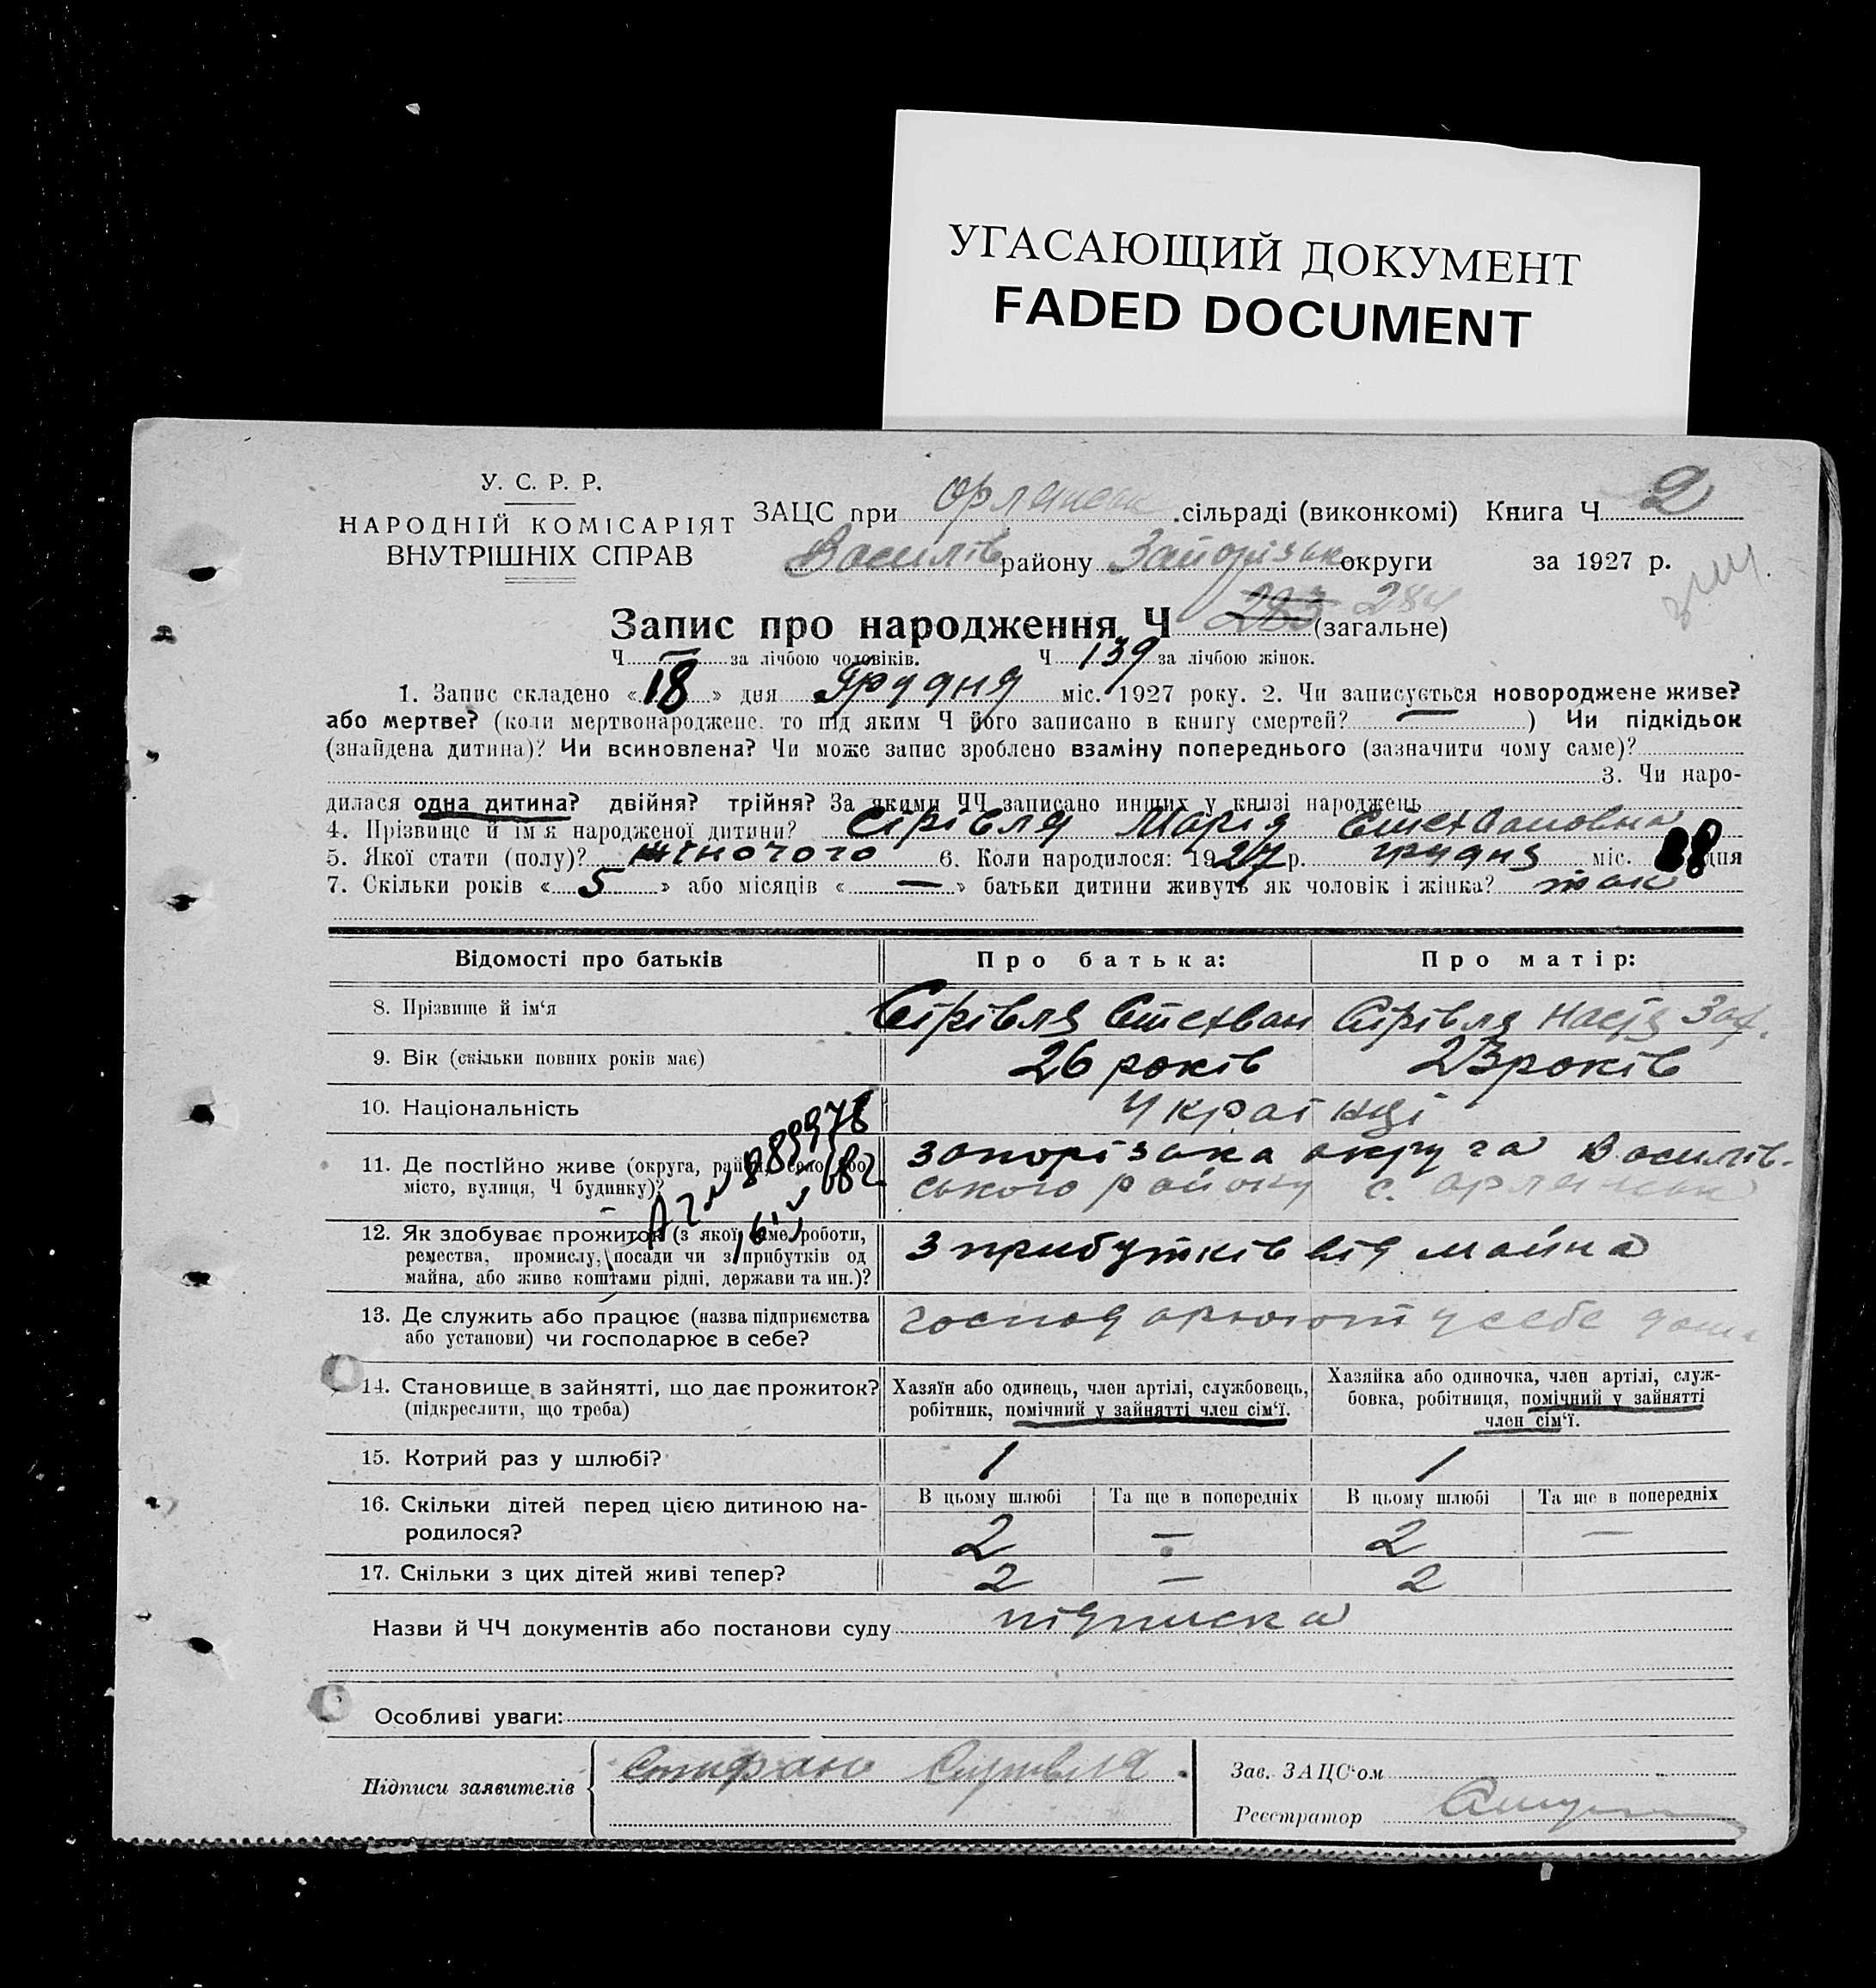 УГАСАЮЩИЙ ДОКУМЕНТ
FADED DOCUMENT
У. С. Р. Р.
НАРОДНІЙ КОМІСАРІЯТ
ВНУТРІШНІХ СПРАВ
ЗАЦС при Орлянськ сільраді (виконкомі) Книга Ч 2
Василів району Запорізьк округи за 1927 р.
Запис про народження Ч 283 284 (загальне)
Ч — за лічбою чоловіків. Ч 139 за лічбою жінок.
1. Запис складено «18» дня Грудня міс. 1927 року. 2. Чи записується новороджене живе?
або мертве? (коли мертвонароджене, то під яким Ч його записано в книгу смертей? — ) Чи підкідьок
(знайдена дитина)? Чи всиновлена? Чи може запис зроблено взаміну попереднього (зазначити чому саме)?
3. Чи наро-
дилася одна дитина? двійня? трійня? За якими ЧЧ записано инших у книзі народжень
4. Прізвище й ім'я народженої дитини? Сірівля Марія Стехвановна
5. Якої стати (полу)? жіночого 6. Коли народилося: 1927 р. грудня міс. 8 дня
7. Скільки років «5» або місяців «—» батьки дитини живуть як чоловік і жінка? так
Відомості про батьків Про батька: Про матір:
8. Прізвище й ім'я Сірівля Стехван Сірівля Настя Зах.
9. Вік (скільки повних років має) 26 років 23 років
10. Національність Українці
11. Де постійно живе (округа, район, село або
місто, вулиця, Ч будинку)?
запорізька округа Василів-
ського району с. Орлянськ
12. Як здобуває прожиток (з якої саме роботи,
ремества, промислу, посади чи з прибутків од
майна, або живе коштами рідні, держави та ин.)?
з прибутків від майна
13. Де служить або працює (назва підприємства
або установи) чи господарює в себе?
господарюют у себе дома
14. Становище в зайнятті, що дає прожиток?
(підкреслити, що треба)
Хазяїн або одинець, член артілі, службовець,
робітник, помічний у зайнятті член сім'ї.
Хазяйка або одиночка, член артілі, служ-
бовка, робітниця, помічний у зайнятті
член сім'ї.
15. Котрий раз у шлюбі? 1 1
16. Скільки дітей перед цією дитиною на-
родилося?
В цьому шлюбі Та ще в попередніх В цьому шлюбі Та ще в попередніх
2 — 2 —
17. Скільки з цих дітей живі тепер? 2 — 2
Назви й ЧЧ документів або постанови суду підписка
Особливі уваги:
Підписи заявителів Стифан Сирівля
Зав. ЗАЦС'ом
Реєстратор